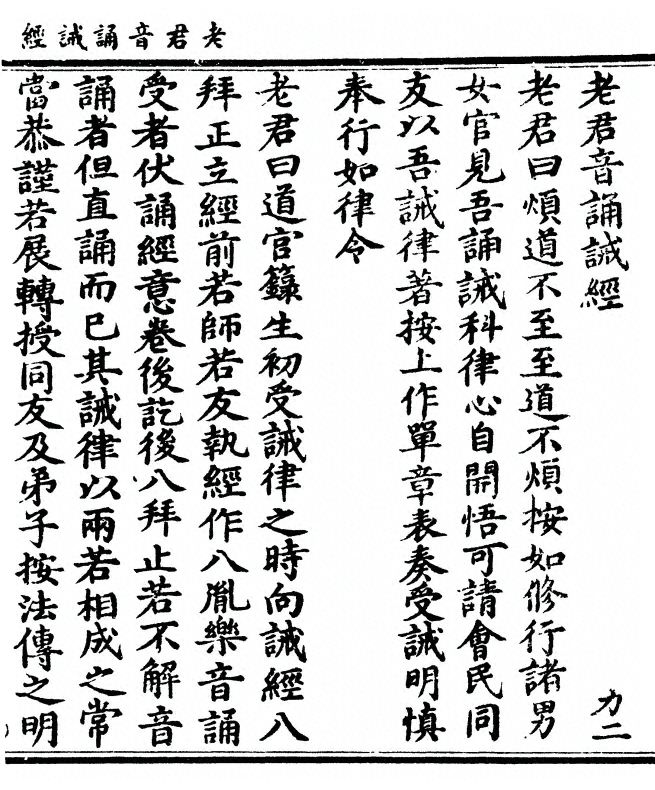 老君音誦誡經
老君音誦誡經 力二
老君曰煩道不至至道不煩按如修行諸男
女官見吾誦誡科律心自開悟可請會民同
友以吾誡律著按上作單章表奏受誡明慎
奉行如律令
老君曰道官籙生初受誡律之時向誡經八
拜正立經前若師若友執經作八胤樂音誦
受者伏誦經意卷後訖後八拜止若不解音
誦者但直誦而已其誡律以兩若相成之常
當恭謹若展轉授同友及弟子按法傳之明